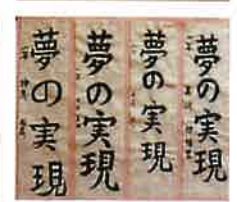 夢の実現
夢の実現
夢の実現
夢の実現